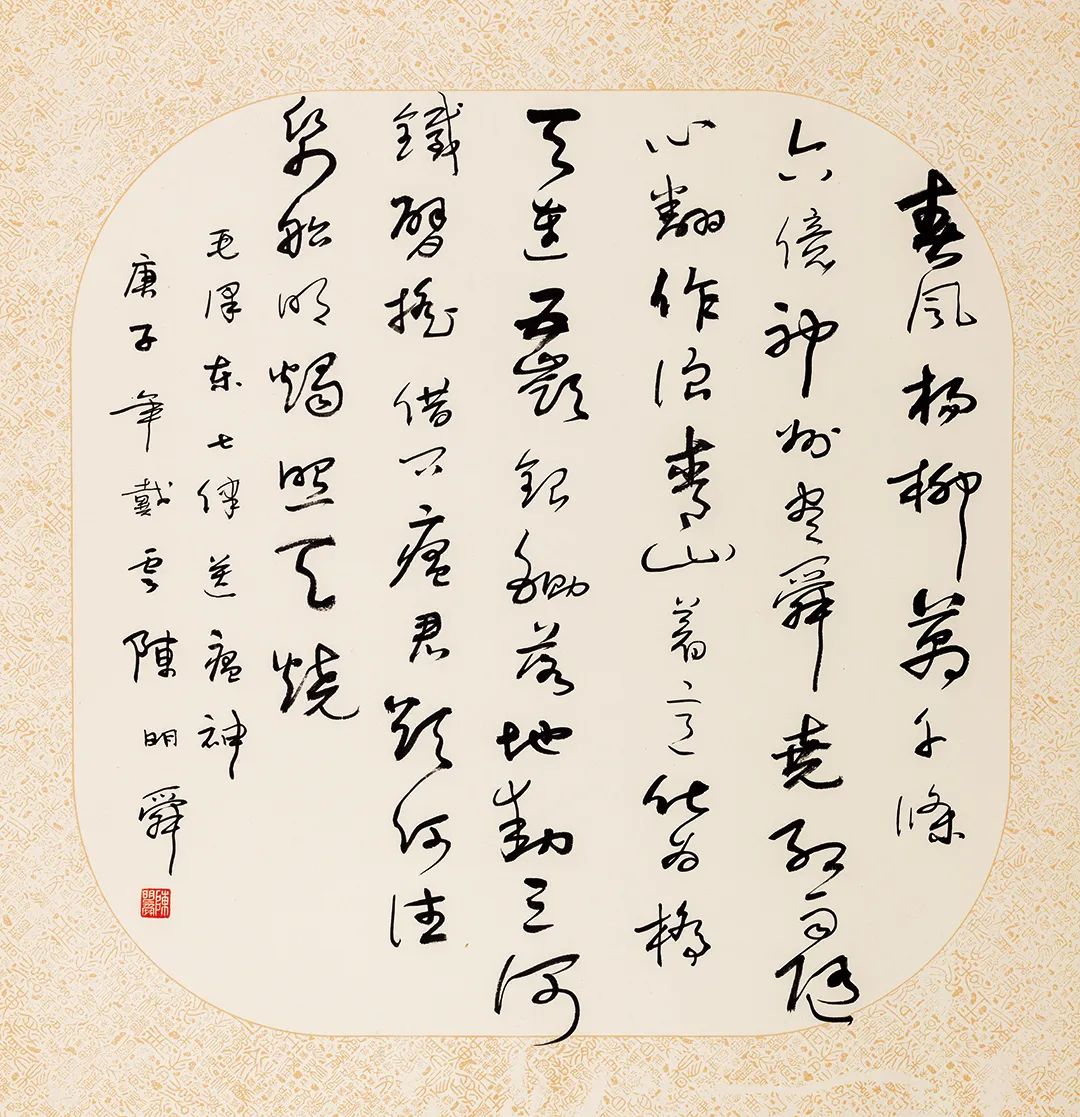 春風楊柳萬千條
六億神州盡舜堯紅雨隨
心翻作浪青山着意化為橋
天連五嶺銀鋤落地動三河
鐵臂搖借問瘟君欲何往
紙船明燭照天燒
毛澤東七律送瘟神
庚子年戴雲陳明舜
陳明舜